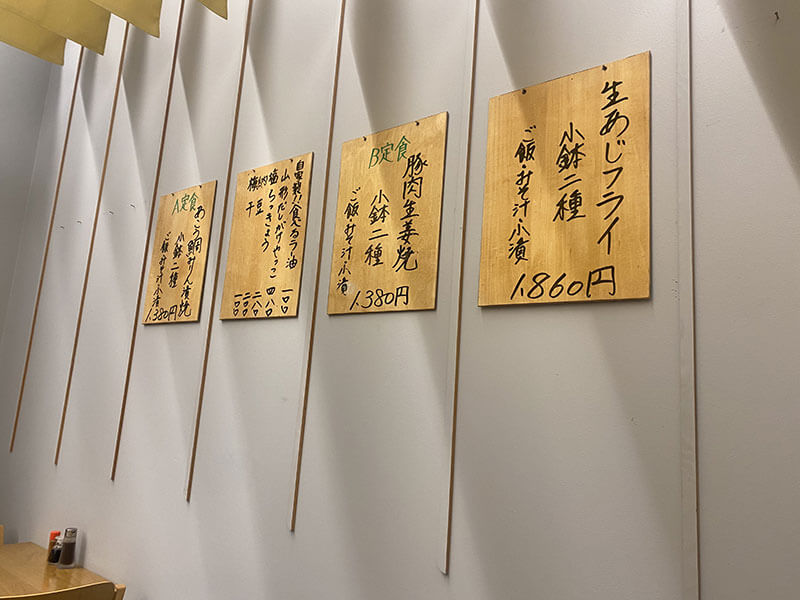 A定食
あこう鯛みりん漬焼
小鉢二種
ご飯・みそ汁・小漬
1,380円
自家製!!食べるラー油 一〇〇
山形だしがけやっこ 四八〇
塩らっきょう 二八〇
納豆 二〇〇
梅干 一〇〇
B定食
豚肉生姜焼
小鉢二種
ご飯・みそ汁・小漬
1,380円
生あじフライ
小鉢二種
ご飯・みそ汁・小漬
1,860円